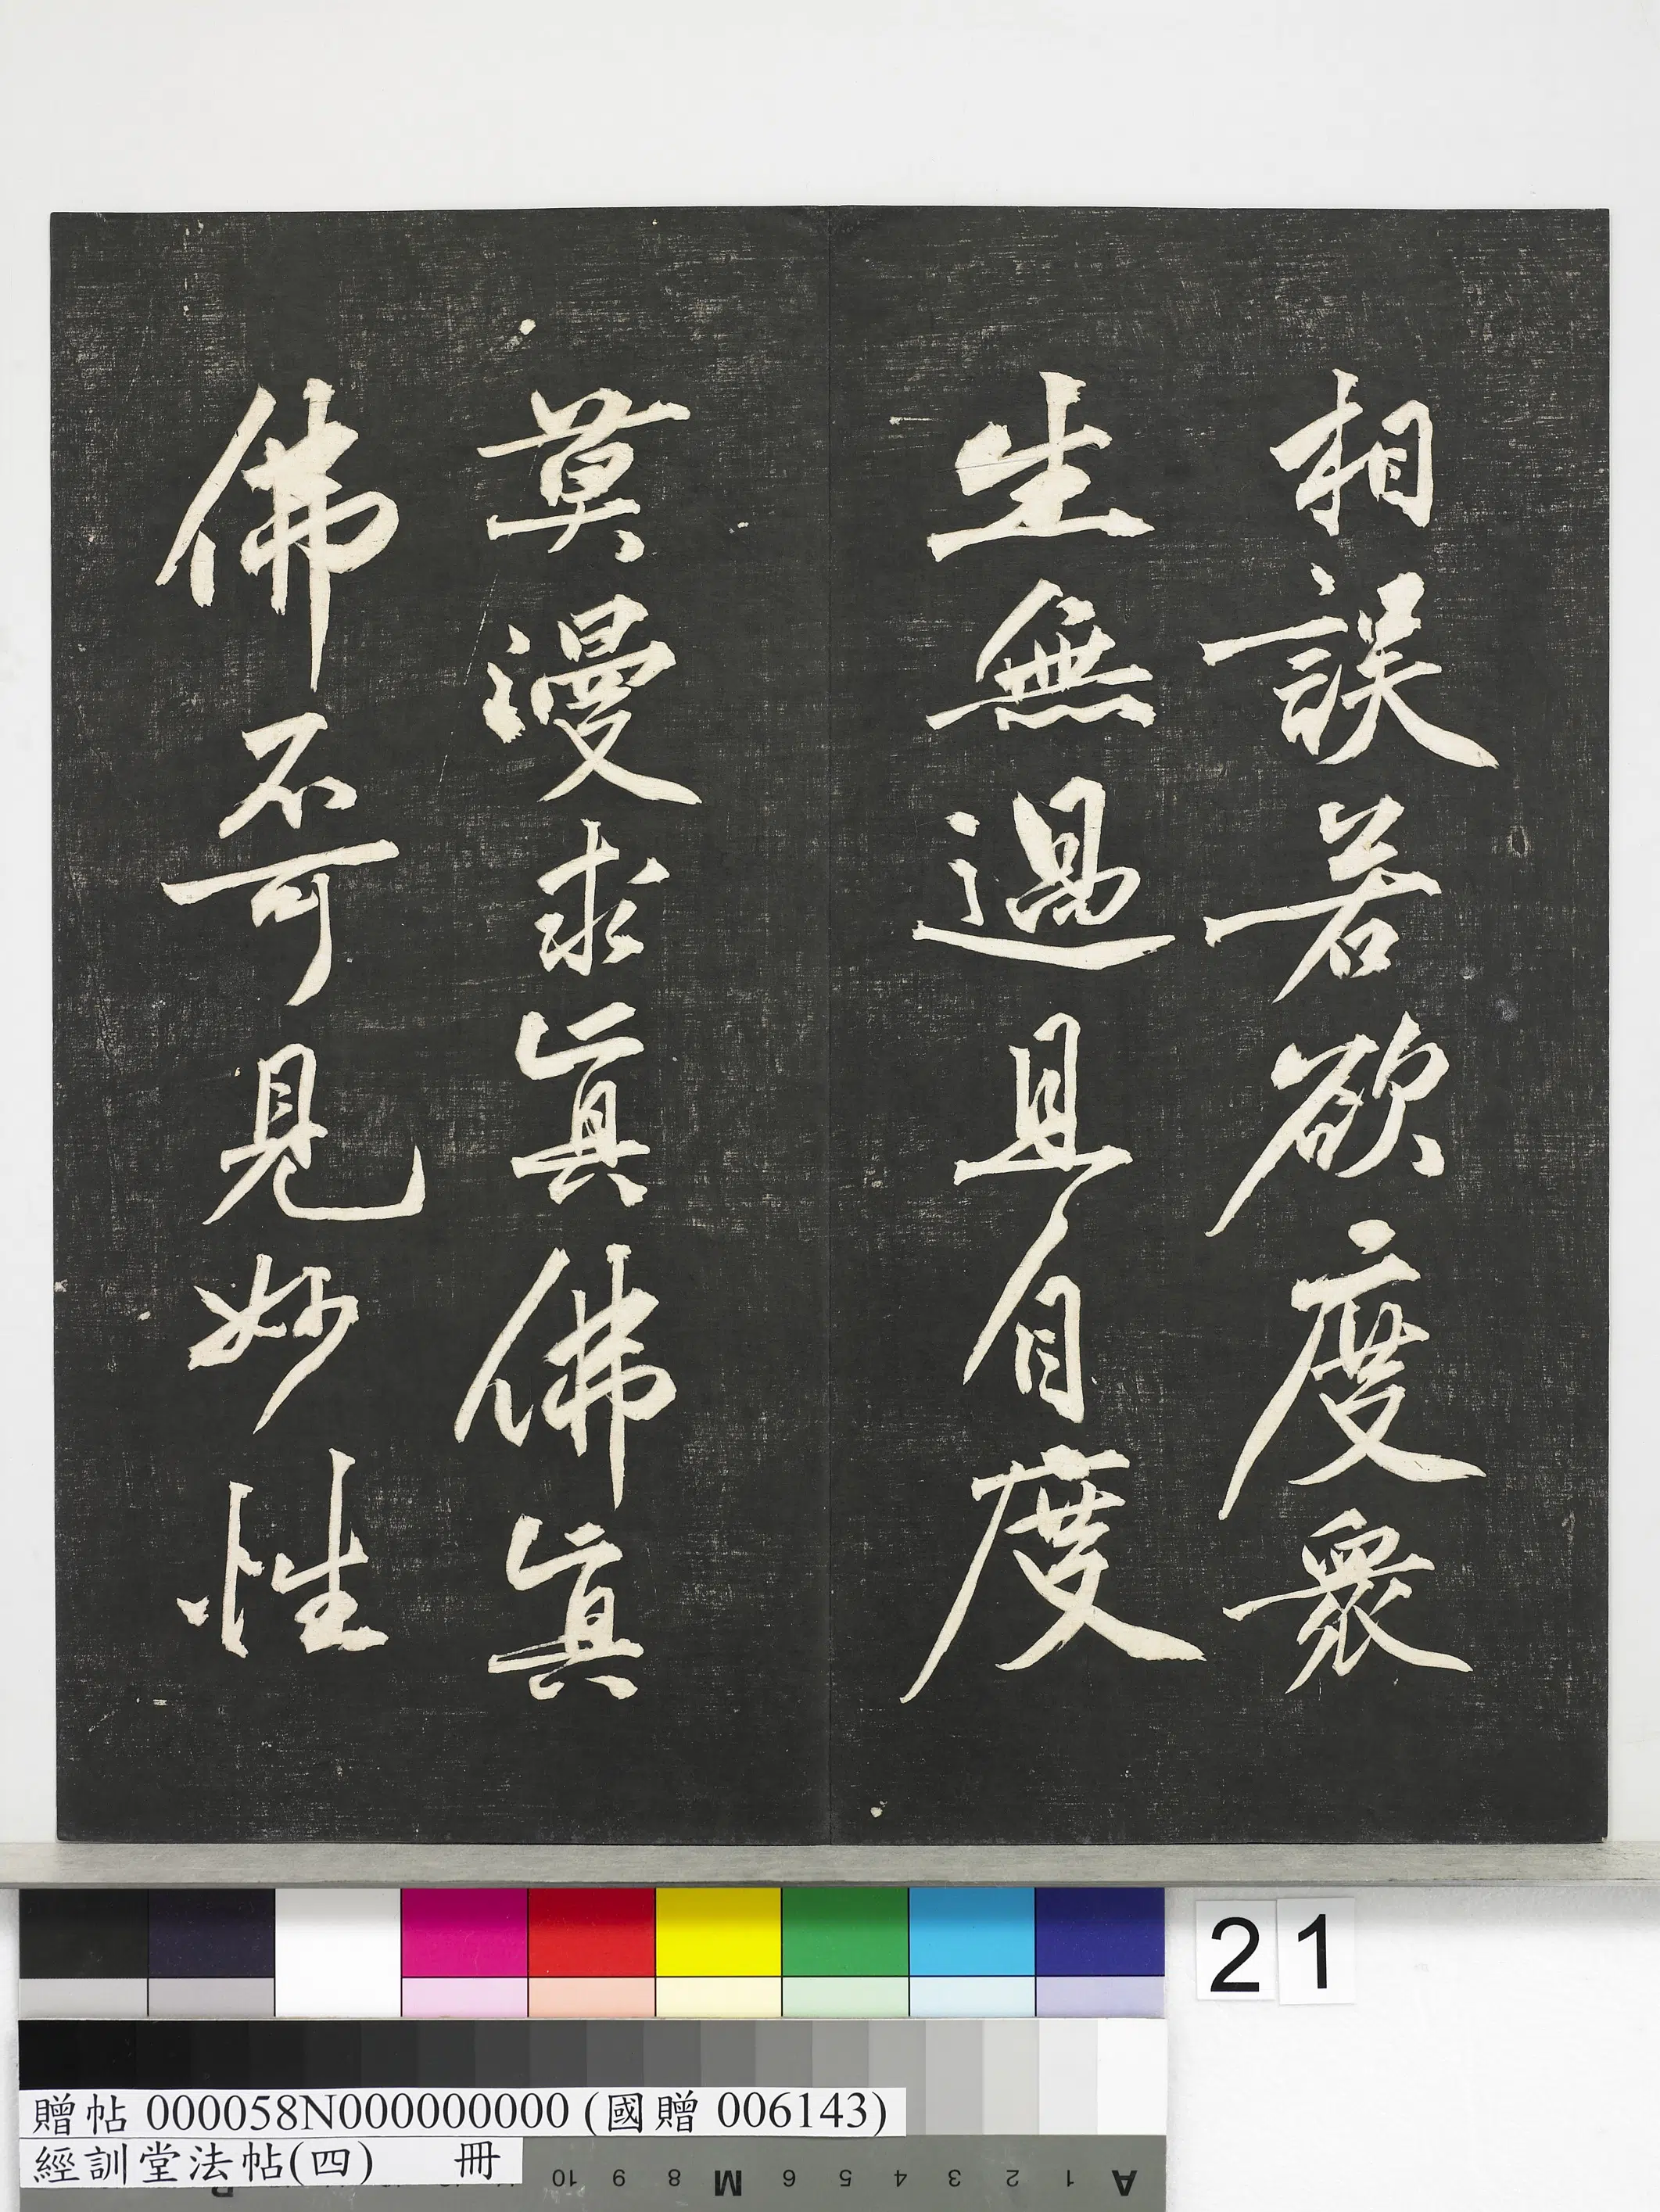 相誤若欲度衆
生無過且自度
莫漫求眞佛眞
佛不可見妙性
21
贈帖 000058N000000000 (國贈 006143)
經訓堂法帖(四) 冊
A 1 2 3 4 5 6 M 8 9 10